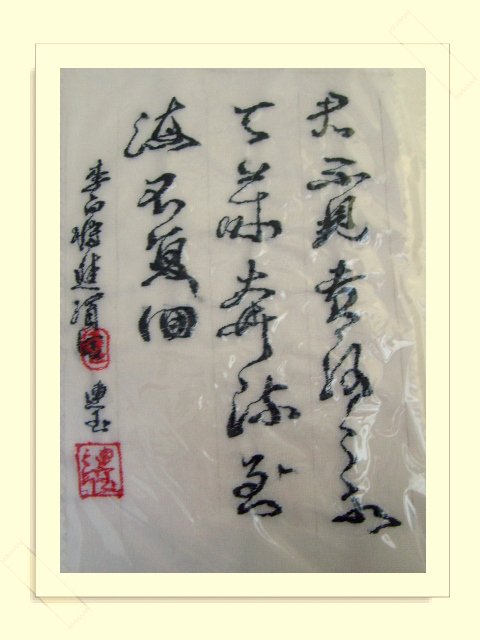 君不見黃河之水
天上來奔流到
海不复回
李白將進酒
玉